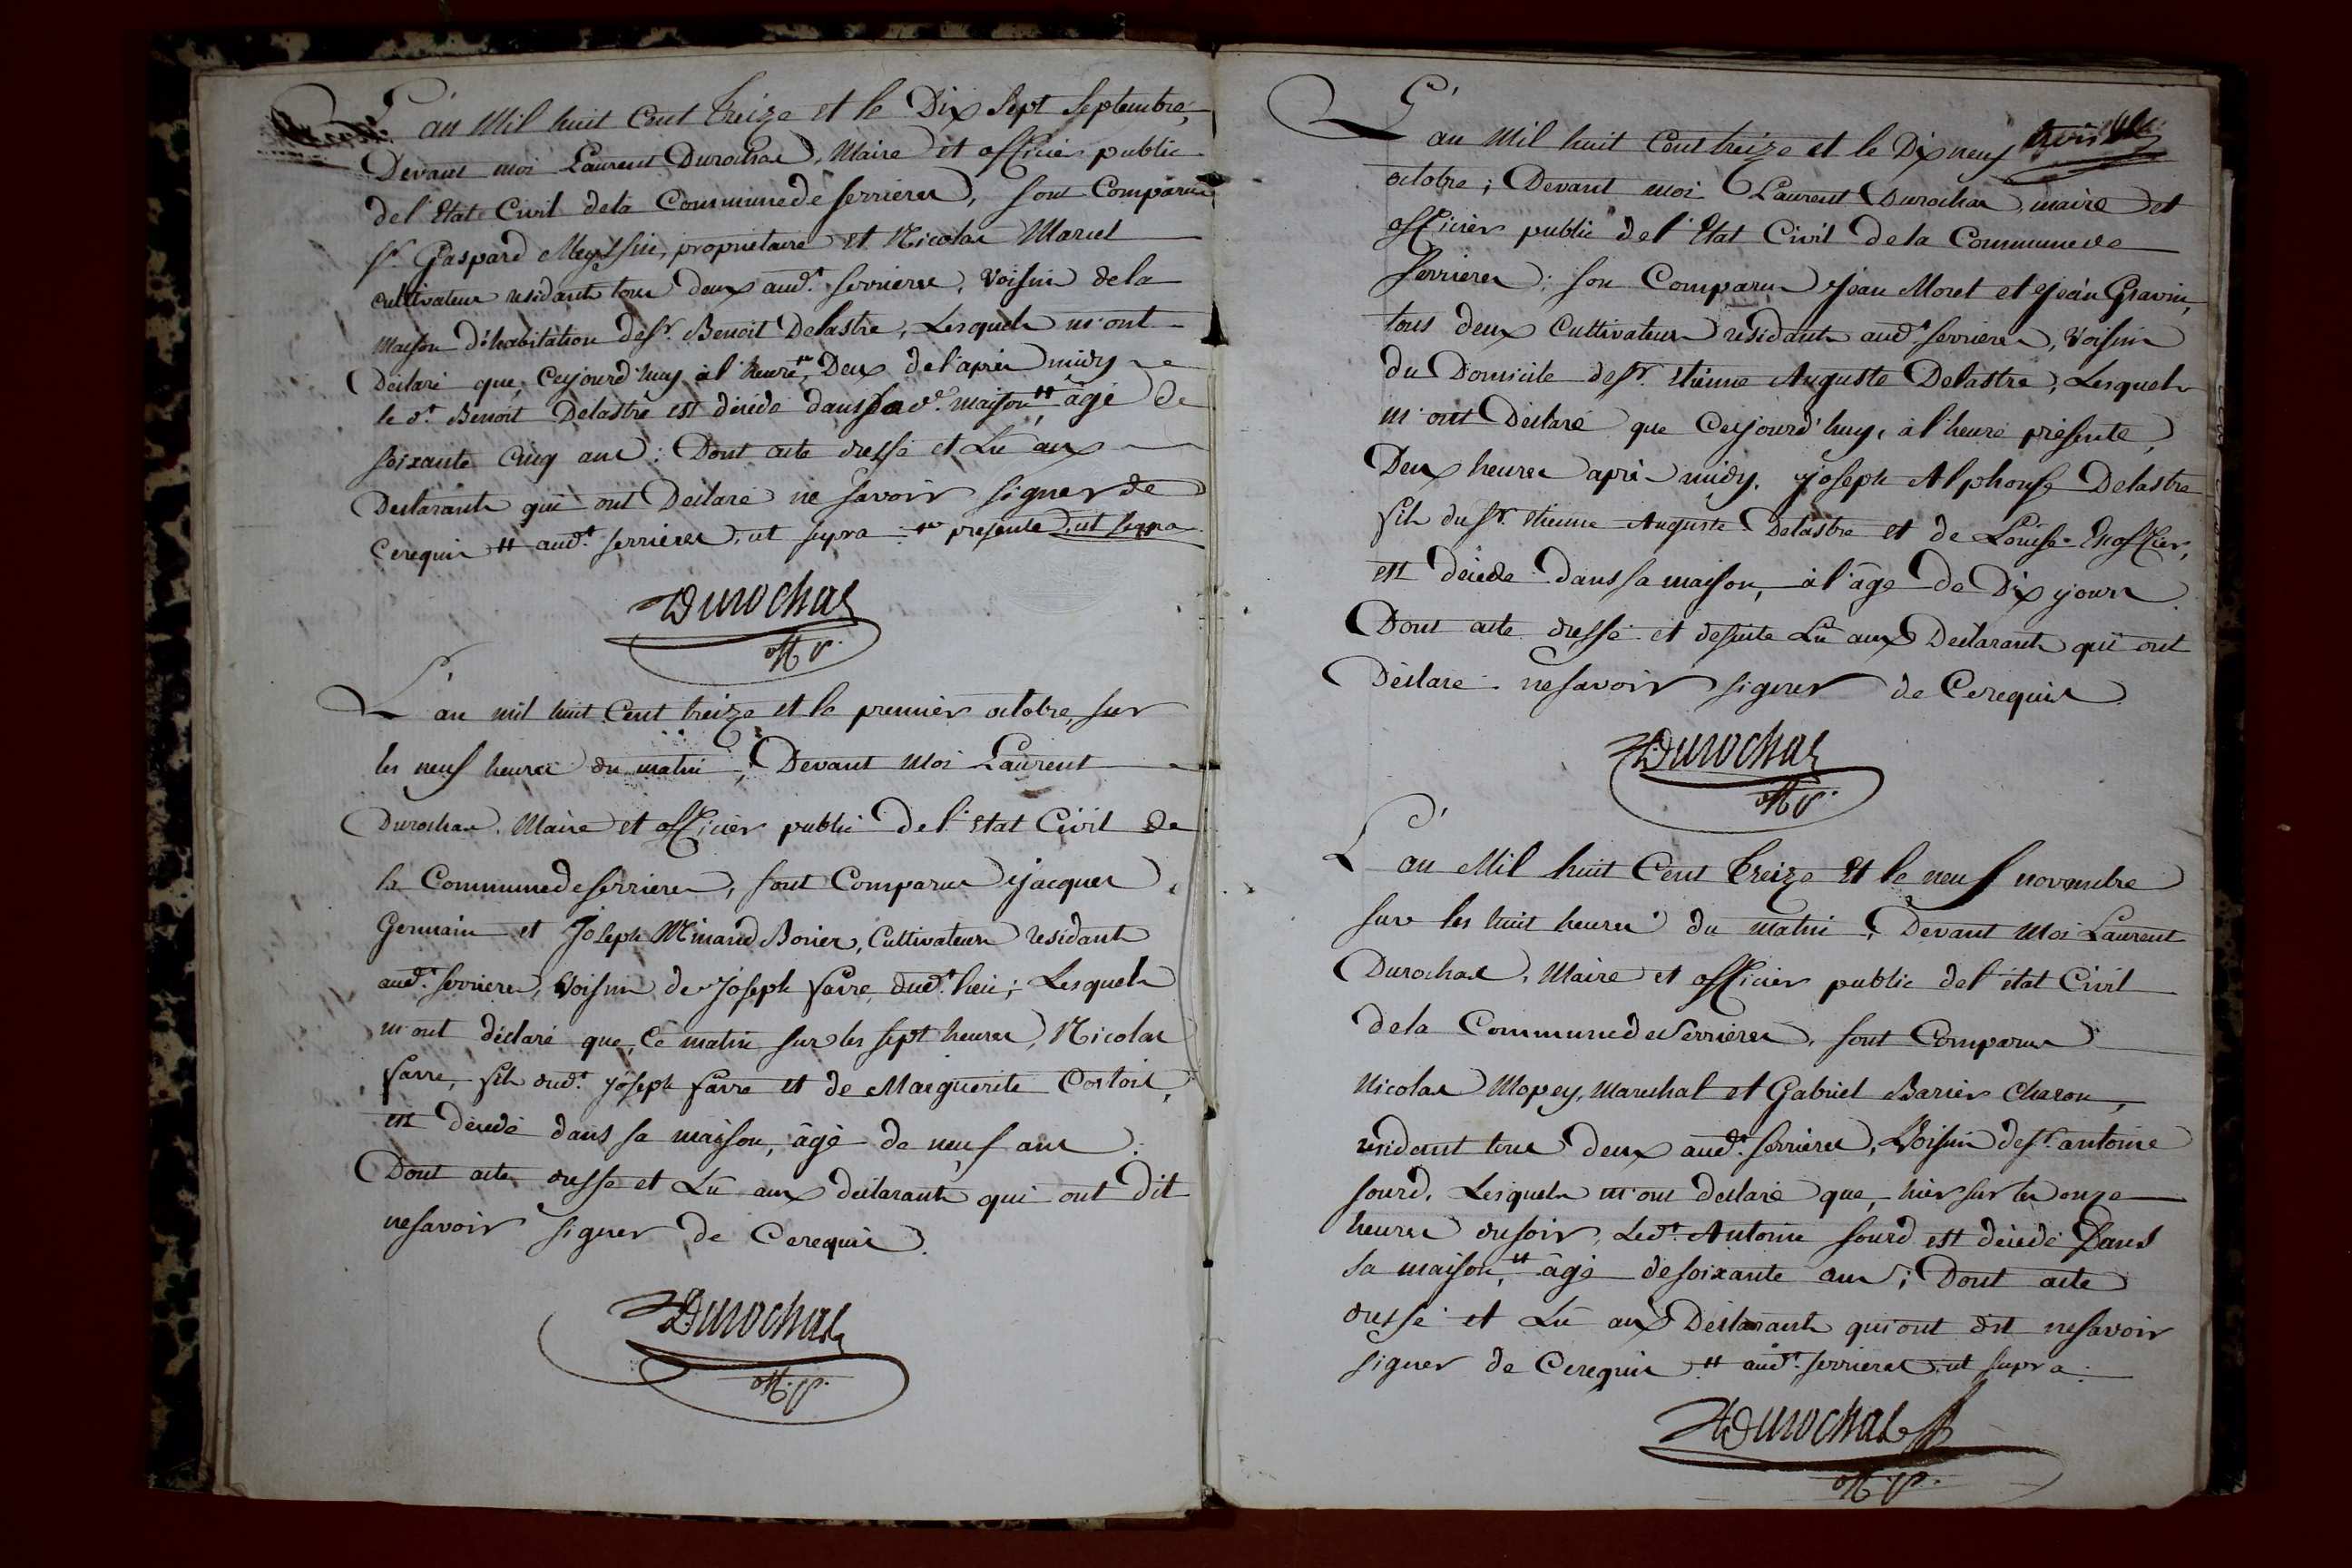 L'an Mil huit Cent treize et le Dix sept septembre,
Devant moi Laurent Durochas, Maire et officier public
de l'Etat Civil dela Commune de serrieres, sont Comparus
sr. Gaspard Meyssin, proprietaire et Nicolas Marcel
cultivateur residants tous deux aud.t serrieres, Voisins dela
maison d'habitation de sr. Benoit Delastre, Lesquels m'ont
Déclaré que, Cejourd'huy à l'heure, Deux del'après midy
le d.t Benoit Delastre est décédé dans sa d.e maison ⧺ âgé de
soixante Cinq ans: Dont acte dressé et Lû aux
Déclarants qui ont Déclaré ne savoir signer de
Ce requis ⧺ aud.t serrieres, ut supra presente ut supra
Durochas
off. P.
L'an mil huit Cent treize et le premier octobre, sur
les neuf heures du matin, Devant Moi Laurent
Durochas, Maire et officier public de l'etat Civil de
la Commune de serrieres, sont Comparus jacques
Germain et Joseph Minand Borier, Cultivateurs residants
aud.t serrieres, Voisins de Joseph favre dud.t lieu; Lesquels
m'ont déclaré que, Ce matin sur les sept heures, Nicolas
favre, fils dud.t joseph favre et de Marguerite
est décédé dans sa maison, âgé de neuf ans.
Dont acte dressé et Lû aux déclarants qui ont Dit
ne savoir signer de Ce requis.
Durochas
off. P.
trois
L'an Mil huit Cent treize et le Dix neuf
octobre; Devant moi Laurent Durochas, maire et
officier public del'Etat Civil dela Commune de
Serrieres; son Comparus jean Moret et jean Gravin,
tous deux Cultivateurs residants aud.t serrieres, Voisins
du Domicile de sr. Etienne Auguste Delastre, Lesquels
m'ont Déclaré que Cejourd'huy, à l'heure présente,
Deux heures après midy, joseph Alphonse Delastre
fils du sr. Etienne Auguste Delastre et de Louise
est décédé dans sa maison, à l'âge de Dix jours.
Dont acte dressé et desuite Lû aux Déclarants qui ont
Déclaré ne savoir signer de Ce requis.
Durochas
off. P.
L'an Mil huit Cent treize Et le neuf novembre
sur les huit heures du matin, Devant Moi Laurent
Durochas, Maire et officier public del'état Civil
dela Commune de Serrieres, sont Comparus
Nicolas Mopey, Marechal et Gabriel Barier Charon,
residant tous deux aud.t serrieres, Voisins de sr. antoine
sourd, Lesquels m'ont déclaré que, hier sur les onze
heures du soir, Led.t Antoine sourd est décédé Dans
sa maison, ⧺ âgé de soixante ans; Dont acte
dressé et Lû aux Déclarants qui ont dit ne savoir
signer de Ce requis ⧺ aud.t serrieres, ut supra.
Durochas
off. P.